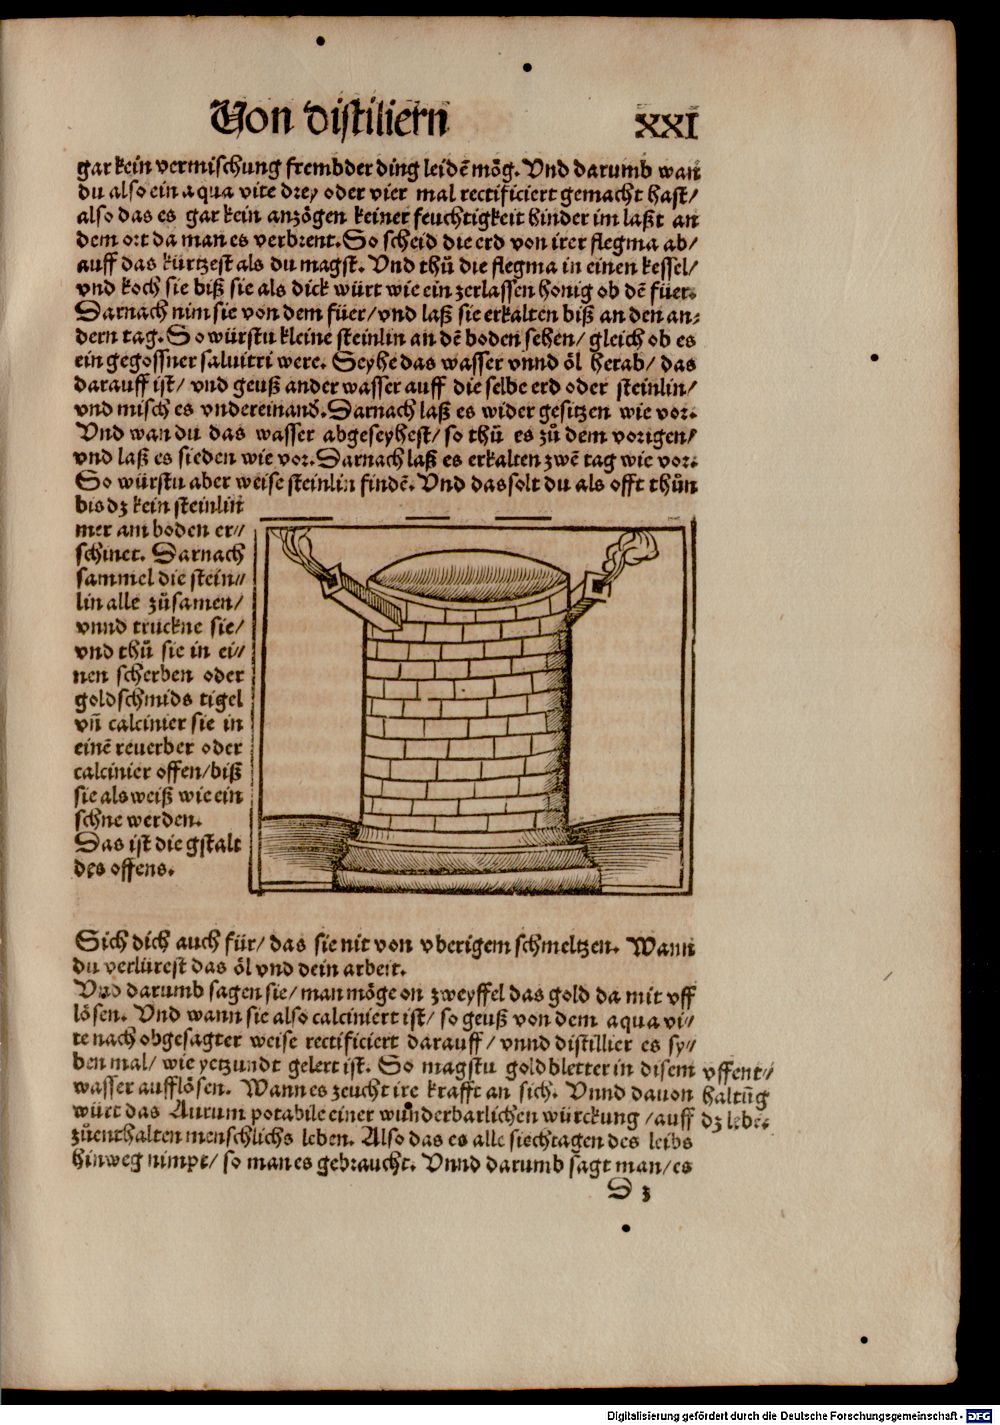 Von distiliern
XXI
gar kein vermischung frembder ding leidē mög. Vnd darumb wan
du also ein aqua vite drey oder vier mal rectificiert gemacht hast/
also das es gar kein anzögen keiner feuchtigkeit hinder im laßt an
dem ort da man es verbrent. So scheid die erd von irer flegma ab/
auff das kürtzest als du magst. Vnd thů die flegma in einen kessel/
vnd koch sie biß sie als dick würt wie ein zerlassen honig ob dē füer.
Darnach nim sie von dem füer/ vnd laß sie erkalten biß an den an⸗
dern tag. So würstu kleine steinlin an dē boden sehen/ gleich ob es
ein gegossner saluitri were. Seyhe das wasser vnnd öl herab/ das
darauff ist/ vnd geuß ander wasser auff die selbe erd oder steinlin/
vnd misch es vndereinand̕. Darnach laß es wider gesitzen wie vor.
Vnd wan du das wasser abgeseyhest/ so thů es zů dem vorigen/
vnd laß es sieden wie vor. Darnach laß es erkalten zwē tag wie vor.
So würstu aber weise steinlin findē. Vnd das solt du als offt thůn
bis dz kein steinlin
mer am boden er⸗
schinet. Darnach
sammel die stein⸗
lin alle zůsamen/
vnnd truckne sie/
vnd thů sie in ei⸗
nen scherben oder
goldschmids tigel
vñ calcinier sie in
einē reuerber oder
calcinier offen/ biß
sie als weiß wie ein
schne werden.
Das ist die gstalt
des offens.
Sich dich auch für/ das sie nit von vberigem schmeltzen. Wann
du verlürest das öl vnd dein arbeit.
Vnd darumb sagen sie/ man möge on zweyffel das gold da mit vff
lösen. Vnd wann sie also calciniert ist/ so geuß von dem aqua vi⸗
te nach obgesagter weise rectificiert darauff/ vnnd distillier es sy⸗
ben mal/ wie yetzundt gelert ist. So magstu gold bletter in disem
wasser aufflösen. Wann es zeucht ire krafft an sich. Vnnd dauon
würt das Aurum potabile einer wunderbarlichen würckung/ auff
zůenthalten menschlichs leben. Also das es alle siechtagen des leibs
hinweg nimpt/ so man es gebraucht. Vnnd darumb sagt man/ es
vffent⸗
haltūg
dz lebē.
D 3
Digitalisierung gefördert durch die Deutsche Forschungsgemeinschaft - DFG